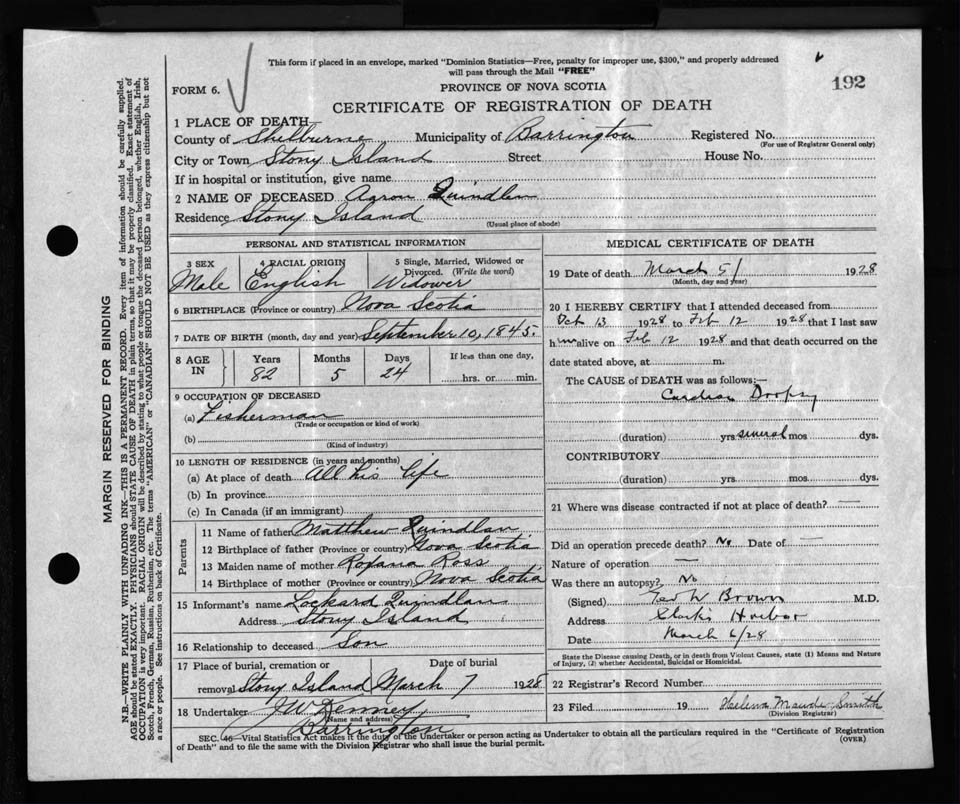 This form if placed in an envelope, marked "Dominion Statistics—Free, penalty for improper use, $300," and properly addressed
will pass through the Mail "FREE"
192
FORM 6.
PROVINCE OF NOVA SCOTIA
CERTIFICATE OF REGISTRATION OF DEATH
1 PLACE OF DEATH
County of Shelburne Municipality of Barrington Registered No.
(For use of Registrar General only)
City or Town Stony Island Street House No.
If in hospital or institution, give name
2 NAME OF DECEASED Aaron Quindlan
Residence Stony Island
(Usual place of abode)
PERSONAL AND STATISTICAL INFORMATION
3 SEX 4 RACIAL ORIGIN 5 Single, Married, Widowed or
Divorced. (Write the word)
Male English Widower
6 BIRTHPLACE (Province or country) Nova Scotia
7 DATE OF BIRTH (month, day and year) September 10, 1845.
8 AGE IN Years Months Days If less than one day,
82 5 24 hrs. or min.
9 OCCUPATION OF DECEASED
(a) Fisherman
(Trade or occupation or kind of work)
(b)
(Kind of industry)
10 LENGTH OF RESIDENCE (in years and months)
(a) At place of death All his life
(b) In province
(c) In Canada (if an immigrant)
Parents
11 Name of father Matthew Quindlan
12 Birthplace of father (Province or country) Nova Scotia
13 Maiden name of mother Roxana Ross
14 Birthplace of mother (Province or country) Nova Scotia
15 Informant's name Lockard Quindlan
Address Stony Island
16 Relationship to deceased Son
17 Place of burial, cremation or Date of burial
removal Stony Island March 7 1928
18 Undertaker J W Kenney
(Name and address)
Barrington
MEDICAL CERTIFICATE OF DEATH
19 Date of death March 5/ 1928
(Month, day and year)
20 I HEREBY CERTIFY that I attended deceased from
Oct 13 1928 to Feb 12 1928 that I last saw
him alive on Feb 12 1928 and that death occurred on the
date stated above, at m.
The CAUSE OF DEATH was as follows:—
Cardiac Dropsy
(duration) yrs. several mos. dys.
CONTRIBUTORY
(duration) yrs. mos. dys.
21 Where was disease contracted if not at place of death? —
Did an operation precede death? No Date of —
Nature of operation —
Was there an autopsy? No
(Signed) W Brown M.D.
Address Clark's Harbor
Date March 6/28
State the Disease causing Death, or in death from Violent Causes, state (1) Means and Nature
of Injury, (2) whether Accidental, Suicidal or Homicidal.
22 Registrar's Record Number
23 Filed 19 Helena Maude Smith
(Division Registrar)
SEC. 46—Vital Statistics Act makes it the duty of the Undertaker or person acting as Undertaker to obtain all the particulars required in the "Certificate of Registration
of Death" and to file the same with the Division Registrar who shall issue the burial permit. (OVER)
MARGIN RESERVED FOR BINDING
N.B.—WRITE PLAINLY WITH UNFADING INK—THIS IS A PERMANENT RECORD. Every item of information should be carefully supplied.
AGE should be stated EXACTLY. PHYSICIANS should STATE CAUSE OF DEATH in plain terms, so that it may be properly classified. Exact statement of
OCCUPATION is very important. RACIAL ORIGIN will be described by stating to what people or tongue the deceased person belonged, whether English, Irish,
Scotch, French, German, Russian, Ruthenian, etc. The terms "AMERICAN" or "CANADIAN" SHOULD NOT BE USED as they express citizenship but not
a race or people. See instructions on back of Certificate.